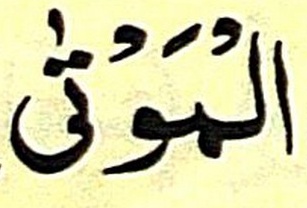 الْمَوْتٰى